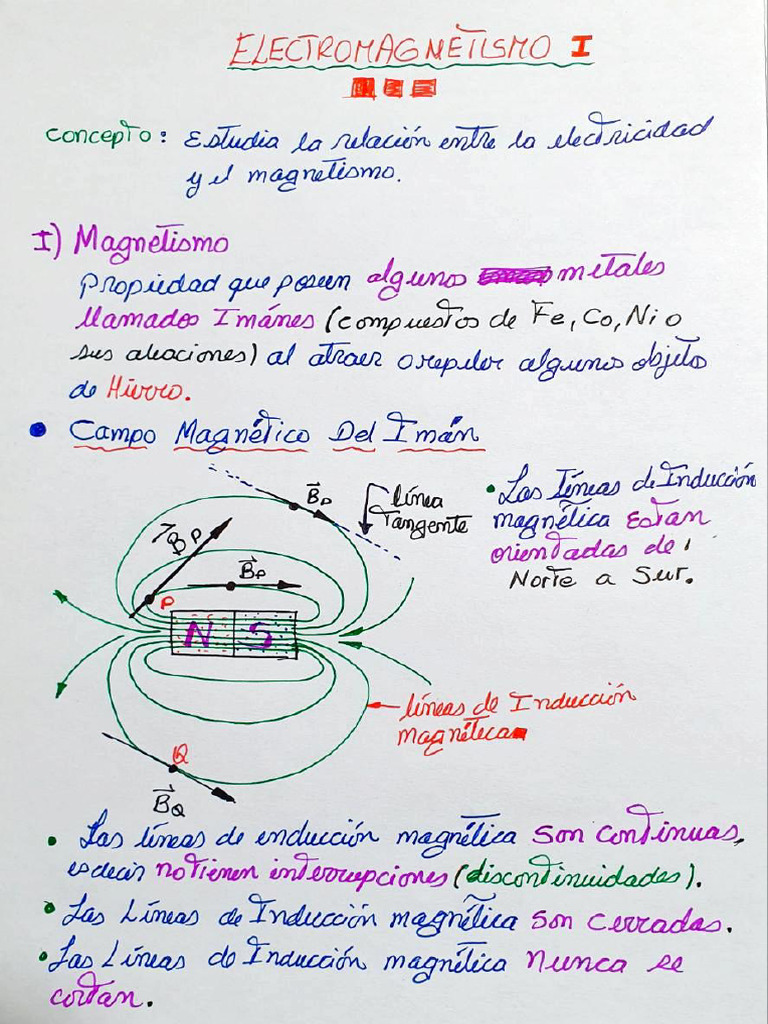 ELECTROMAGNETISMO I
Concepto: Estudia la relación entre la electricidad
y el magnetismo.
I) Magnetismo
Propiedad que poseen algunos metales
llamados Imánes (compuestos de Fe, Co, Ni o
sus aleaciones) al atraer o repeler algunos objetos
de Hierro.
• Campo Magnético Del Imán
B⃗P
línea
Tangente
• Las líneas de Inducción
magnética Estan
orientadas de
Norte a Sur.
B⃗P
B⃗P
P
N S
líneas de Inducción
magnética
Q
B⃗Q
• Las líneas de enducción magnética son continuas,
es decir no tienen interrupciones (discontinuidades).
• Las Líneas de Inducción magnética son cerradas.
• Las Líneas de Inducción magnética nunca se
cortan.